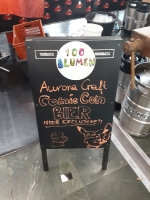 100
BLUMEN
Aurora Craft
Comic Con
BIER
HIER EXCLUSIV!